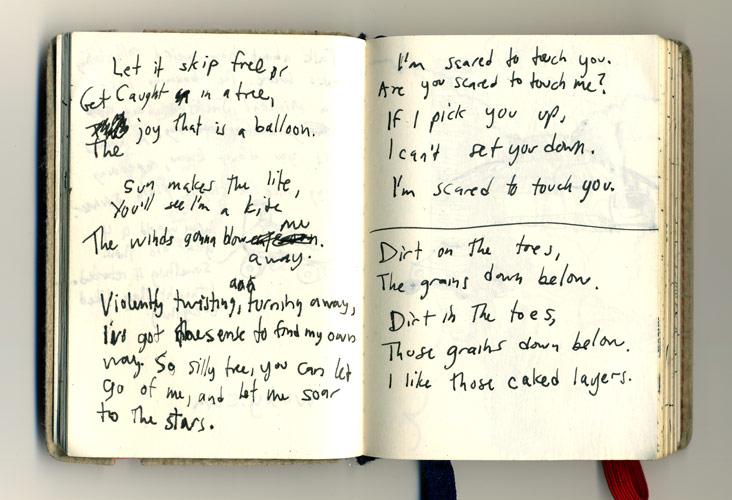 Let it skip free, or
Get Caught in a tree,
The joy that is a balloon.
Sun makes the lite,
You'll see I'm a kite
The winds gonna blow me
away.
Violently twisting, and turning away,
I've got the sense to find my own
way. So, silly tree, you can let
go of me, and let me soar
to the stars.
I'm scared to touch you.
Are you scared to touch me?
If I pick you up,
I can't set you down.
I'm scared to touch you.
Dirt on the toes,
The grains down below.
Dirt in the toes,
Those grains down below.
I like those caked layers.